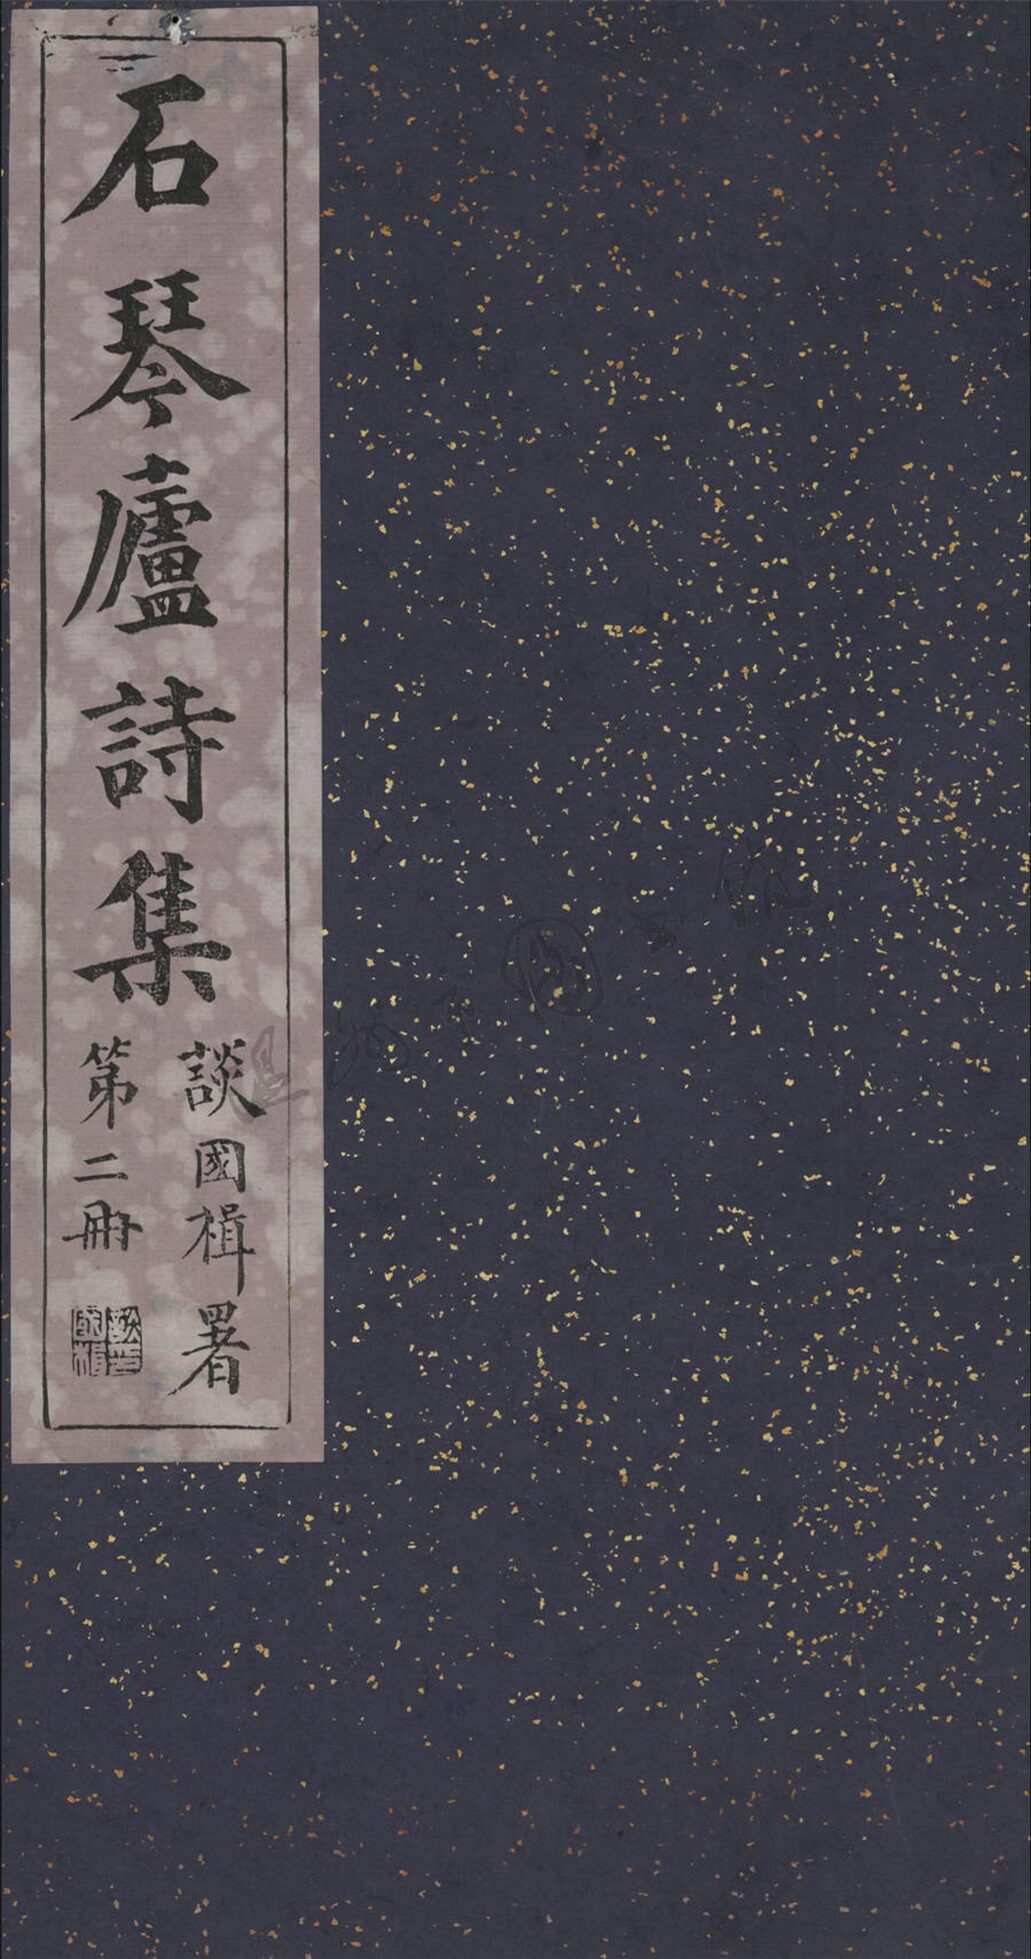 石琴廬詩集
談國楫署
第二冊